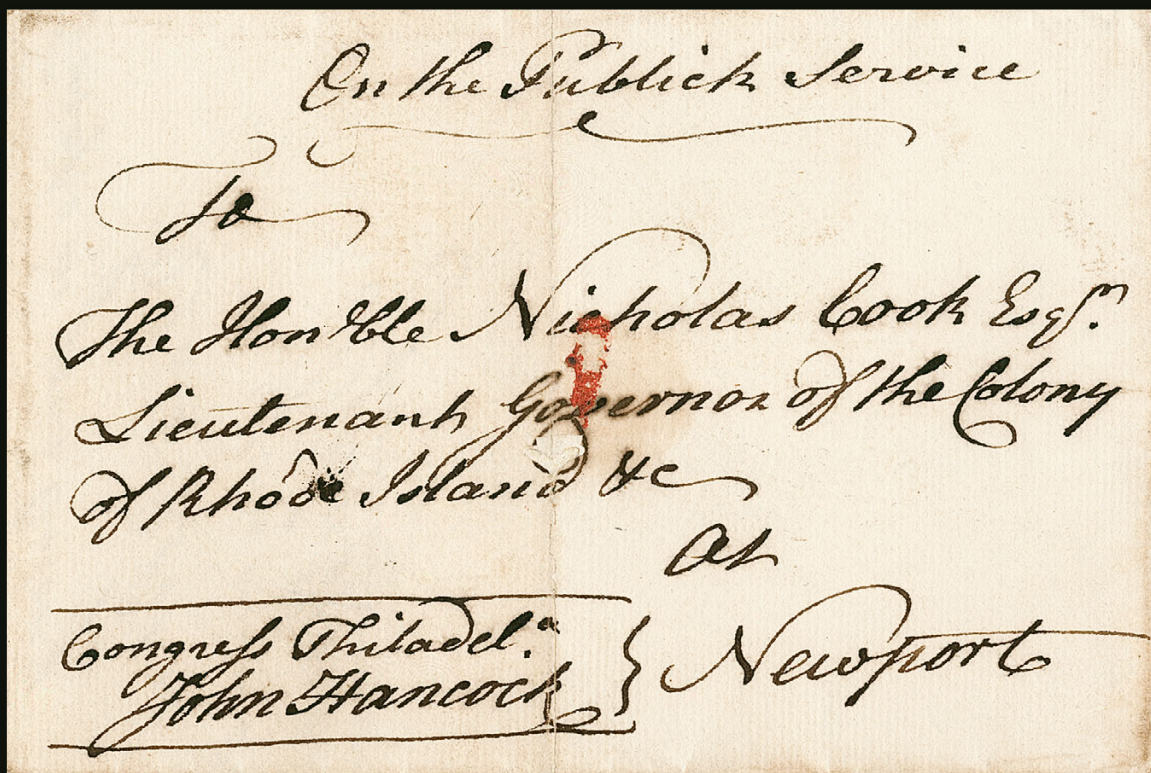 On the Publick Service
To
The Hon'ble Nicholas Cook Esqr.
Lieutenant Governor of the Colony
of Rhode Island &c
At
Newport
Congress Philadel.a
John Hancock